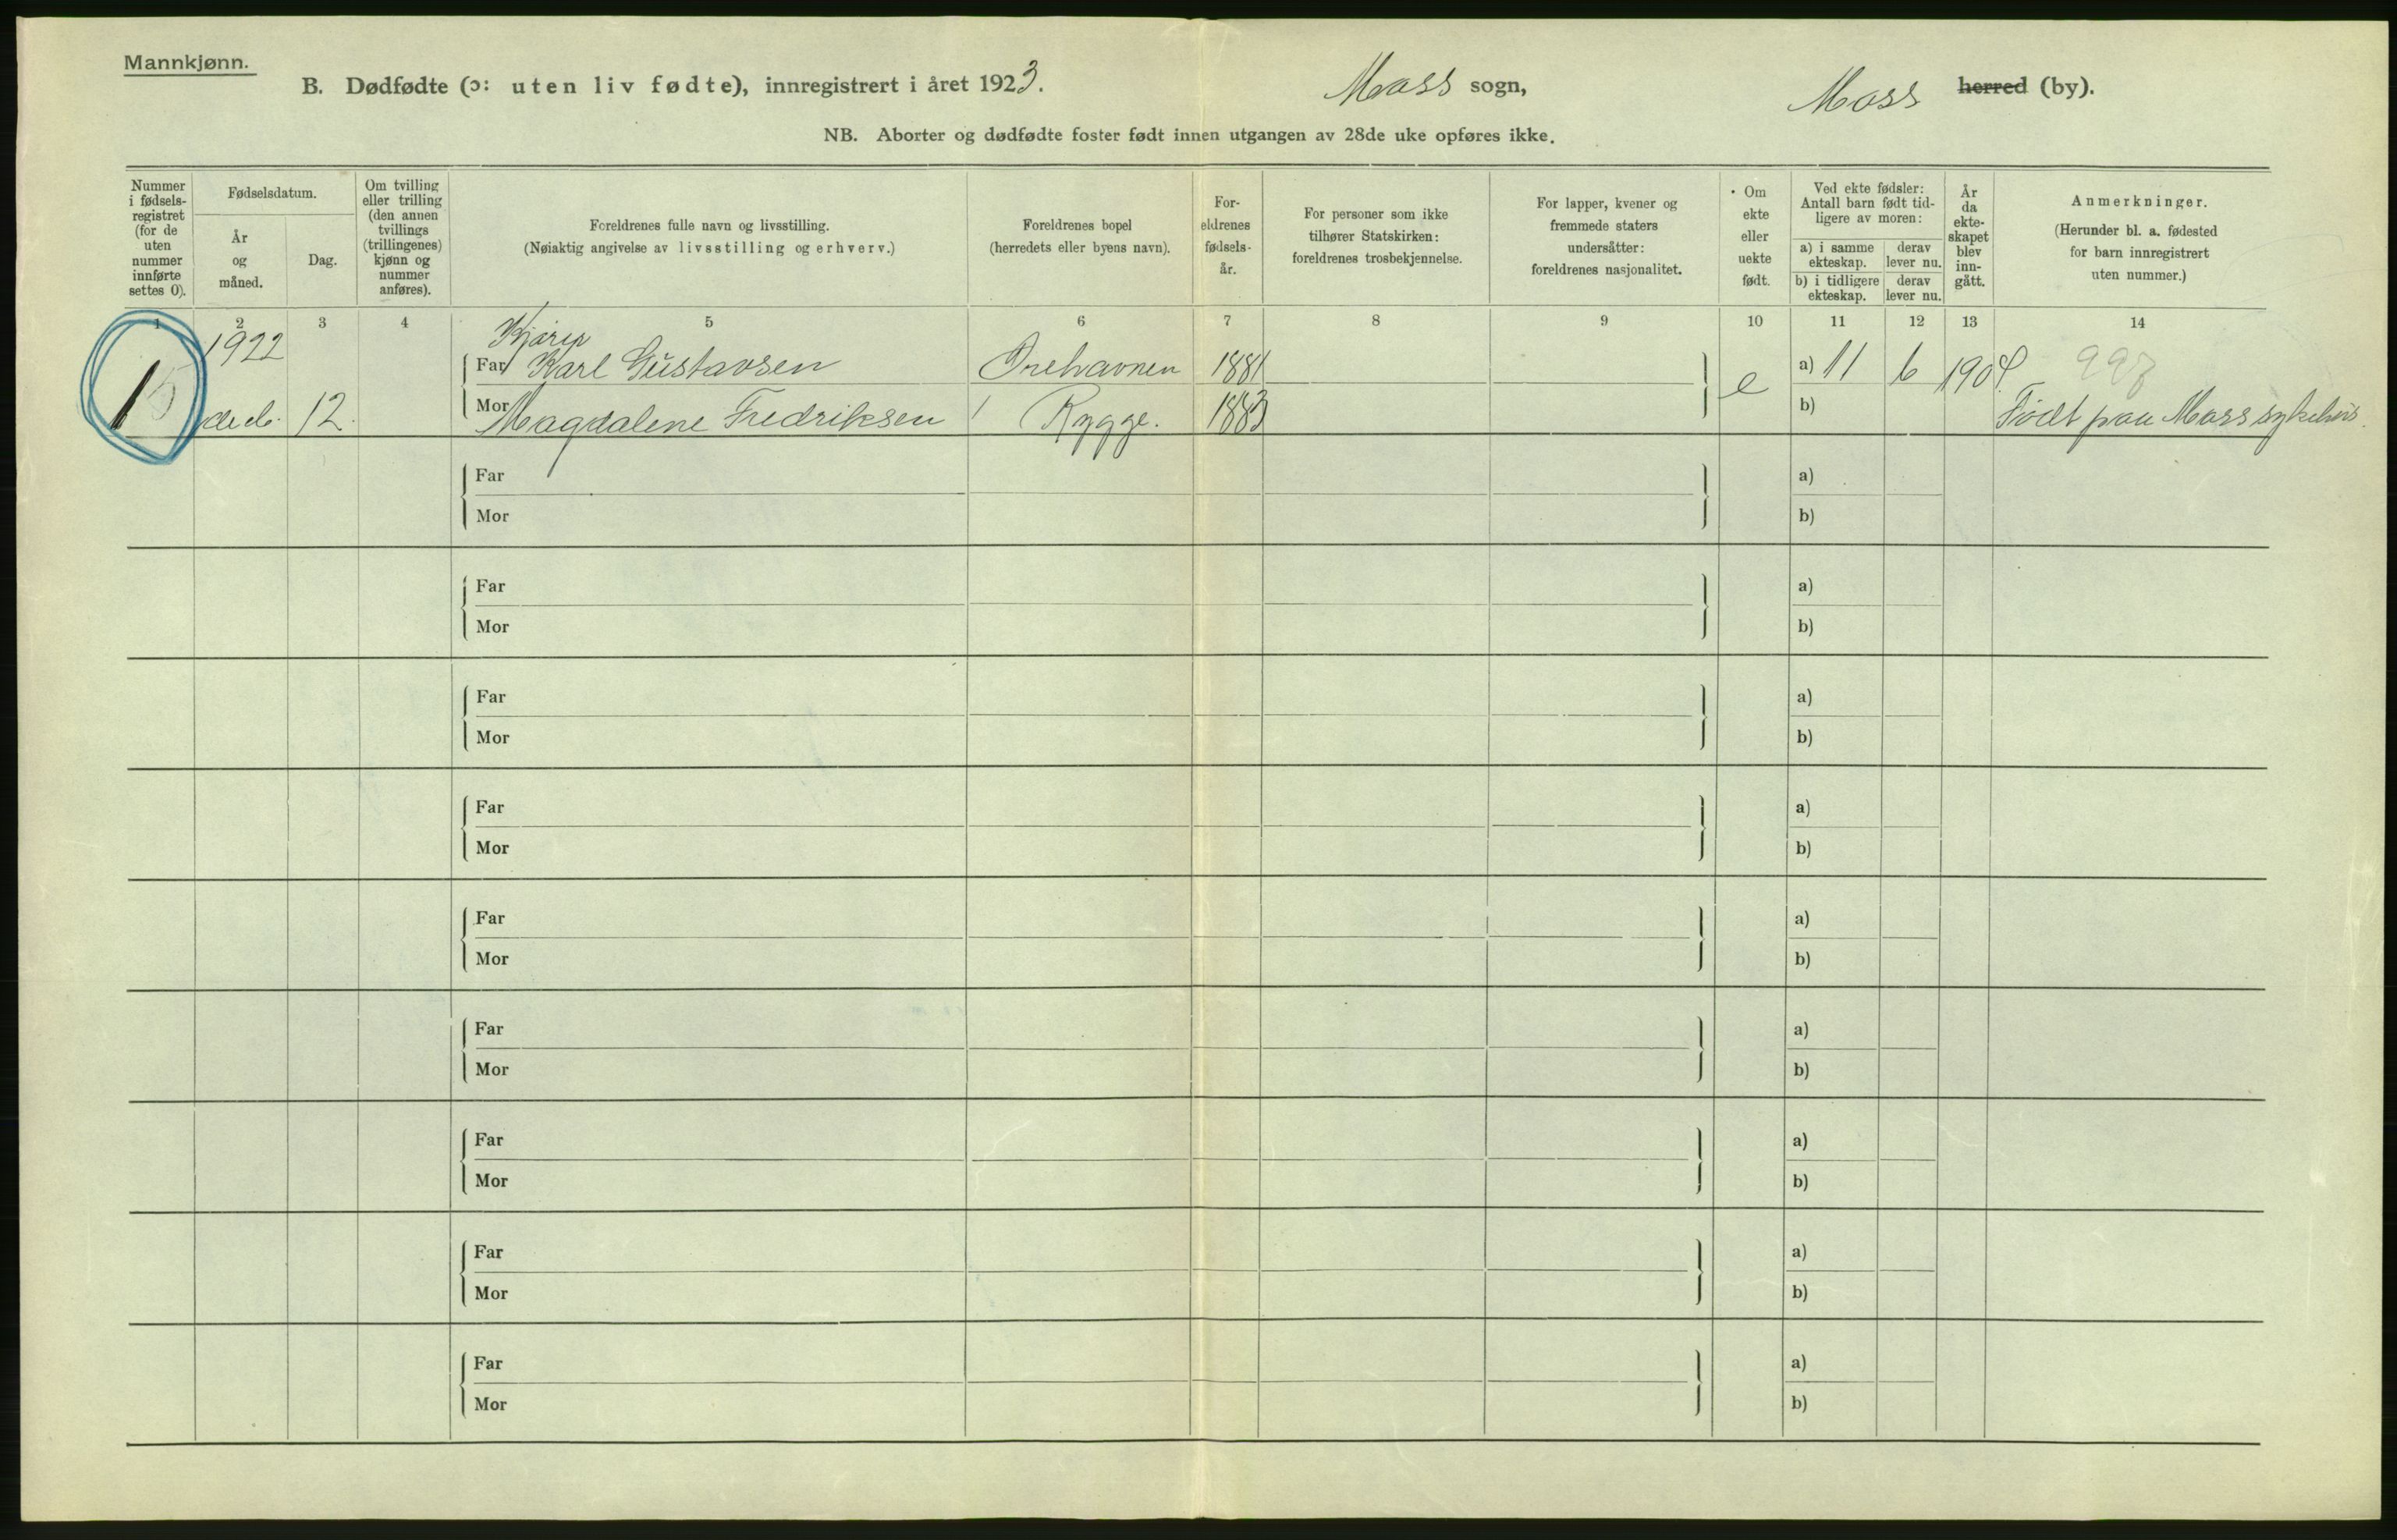 Mannkjønn.
B. Dødfødte (ɔ: uten liv fødte), innregistrert i året 1923. Moss sogn, Moss herred (by).
NB. Aborter og dødfødte foster født innen utgangen av 28de uke opføres ikke.
Nummer i fødsels-registret (for de uten nummer innførte settes 0).
Fødselsdatum.
År og måned.
Dag.
Om tvilling eller trilling (den annen tvillings (trillingenes) kjønn og nummer anføres).
Foreldrenes fulle navn og livsstilling.
(Nøiaktig angivelse av livsstilling og erhverv.)
Foreldrenes bopel
(herredets eller byens navn).
For-eldrenes fødsels-år.
For personer som ikke tilhører Statskirken: foreldrenes trosbekjennelse.
For lapper, kvener og fremmede staters undersåtter: foreldrenes nasjonalitet.
Om ekte eller uekte født.
Ved ekte fødsler: Antall barn født tid-ligere av moren:
a) i samme ekteskap.
derav lever nu.
b) i tidligere ekteskap.
derav lever nu.
År da ekte-skapet blev inn-gått.
Anmerkninger.
(Herunder bl. a. fødested for barn innregistrert uten nummer.)
1 2 3 4 5 6 7 8 9 10 11 12 13 14
1922
Far Karl Gustavsen 1881 a) 11 6 1904
1 decb. 12. Mor Magdalene Fredriksen Rygge. 1883 e b) Født paa Moss sykehus.
Far a)
Mor b)
Far a)
Mor b)
Far a)
Mor b)
Far a)
Mor b)
Far a)
Mor b)
Far a)
Mor b)
Far a)
Mor b)
Far a)
Mor b)
Far a)
Mor b)